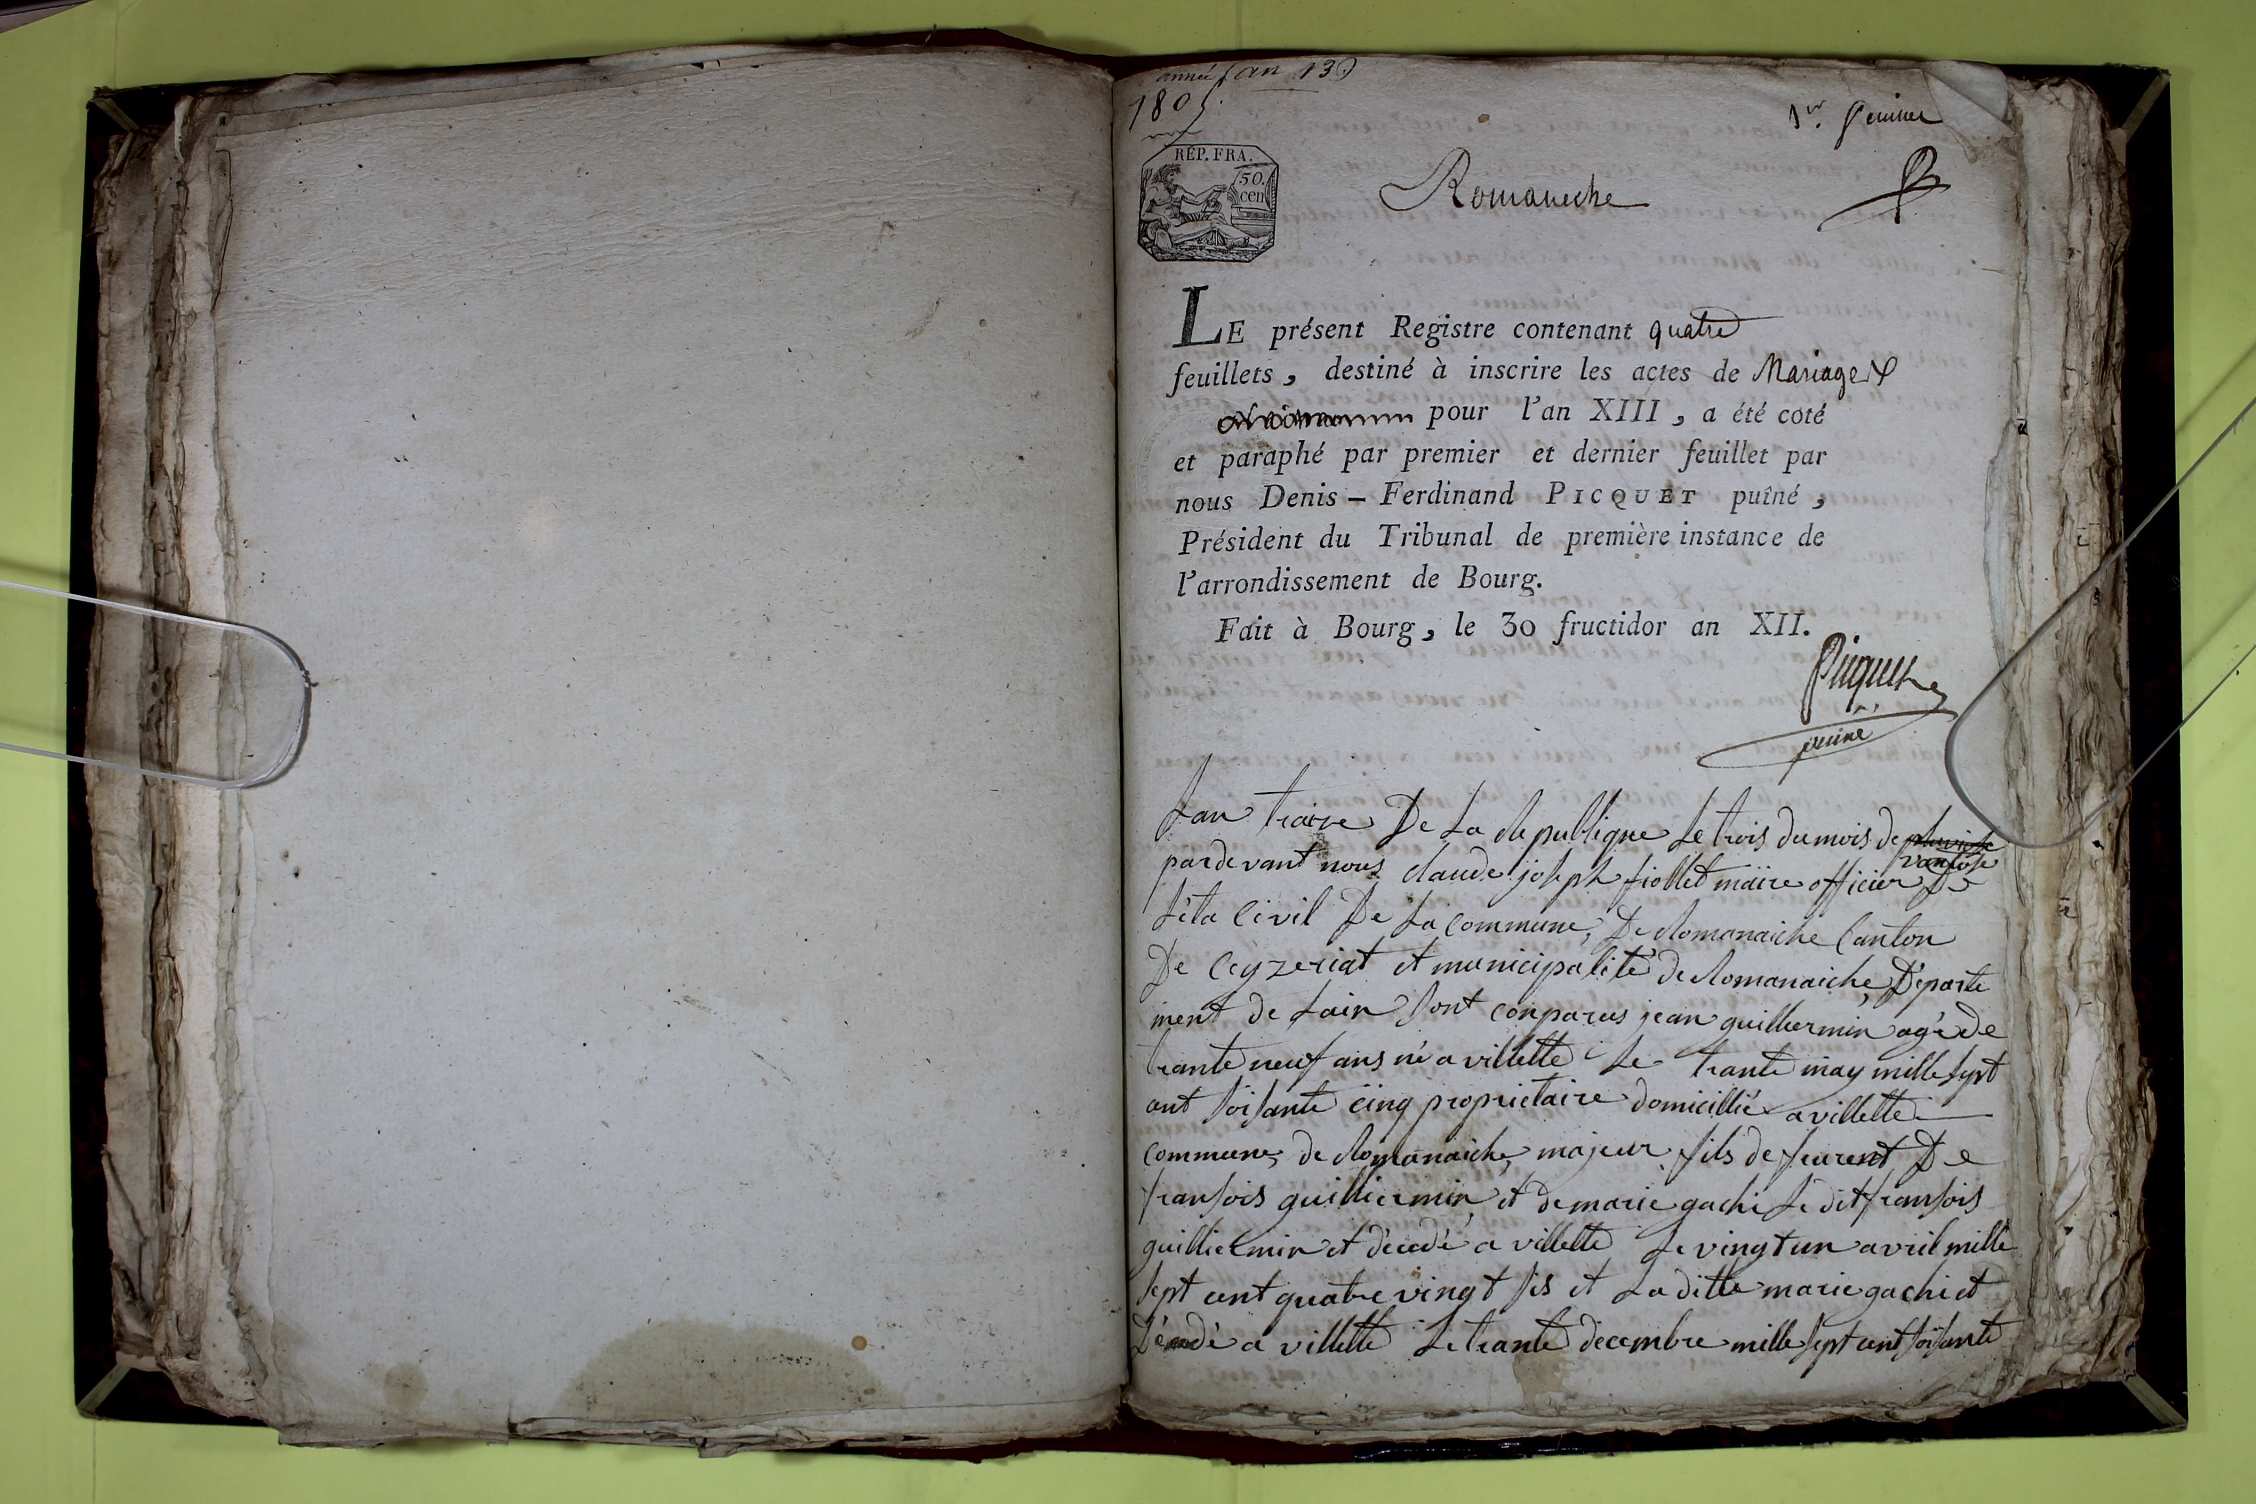 année (an 13)
1805.
1er. feuillet
RÉP. FRA.
50.
cen
Romaneche
LE présent Registre contenant quatre
feuillets, destiné à inscrire les actes de Mariages
pour l'an XIII, a été coté
et paraphé par premier et dernier feuillet par
nous Denis – Ferdinand PICQUET puîné,
Président du Tribunal de première instance de
l'arrondissement de Bourg.
Fait à Bourg, le 30 fructidor an XII.
Picquet
puiné
Lan traize De La Republique Le trois du mois de pluviose
vantose
pardevant nous claude joseph fiollet maire officier De
Léta Civil De La commune, De Romanaiche Canton
De Ceyzeriat et municipalité de Romanaiche, Departe
ment de Lain Sont conparus jean guilliermin agé de
trante neuf ans né a villette Le trante may mille sept
cent soisante cinq proprietaire domicillié a villette
commune, de Romanaiche, majeur fils de feurent De
fransois guilliermin et de marie gachi Le dit fransois
guilliermin et décedé a villette Le vingt un avril mille
sept cent quatre vingt sis et La ditte marie gachi et
Décedé a villette Le trante decembre mille sept cent soisante